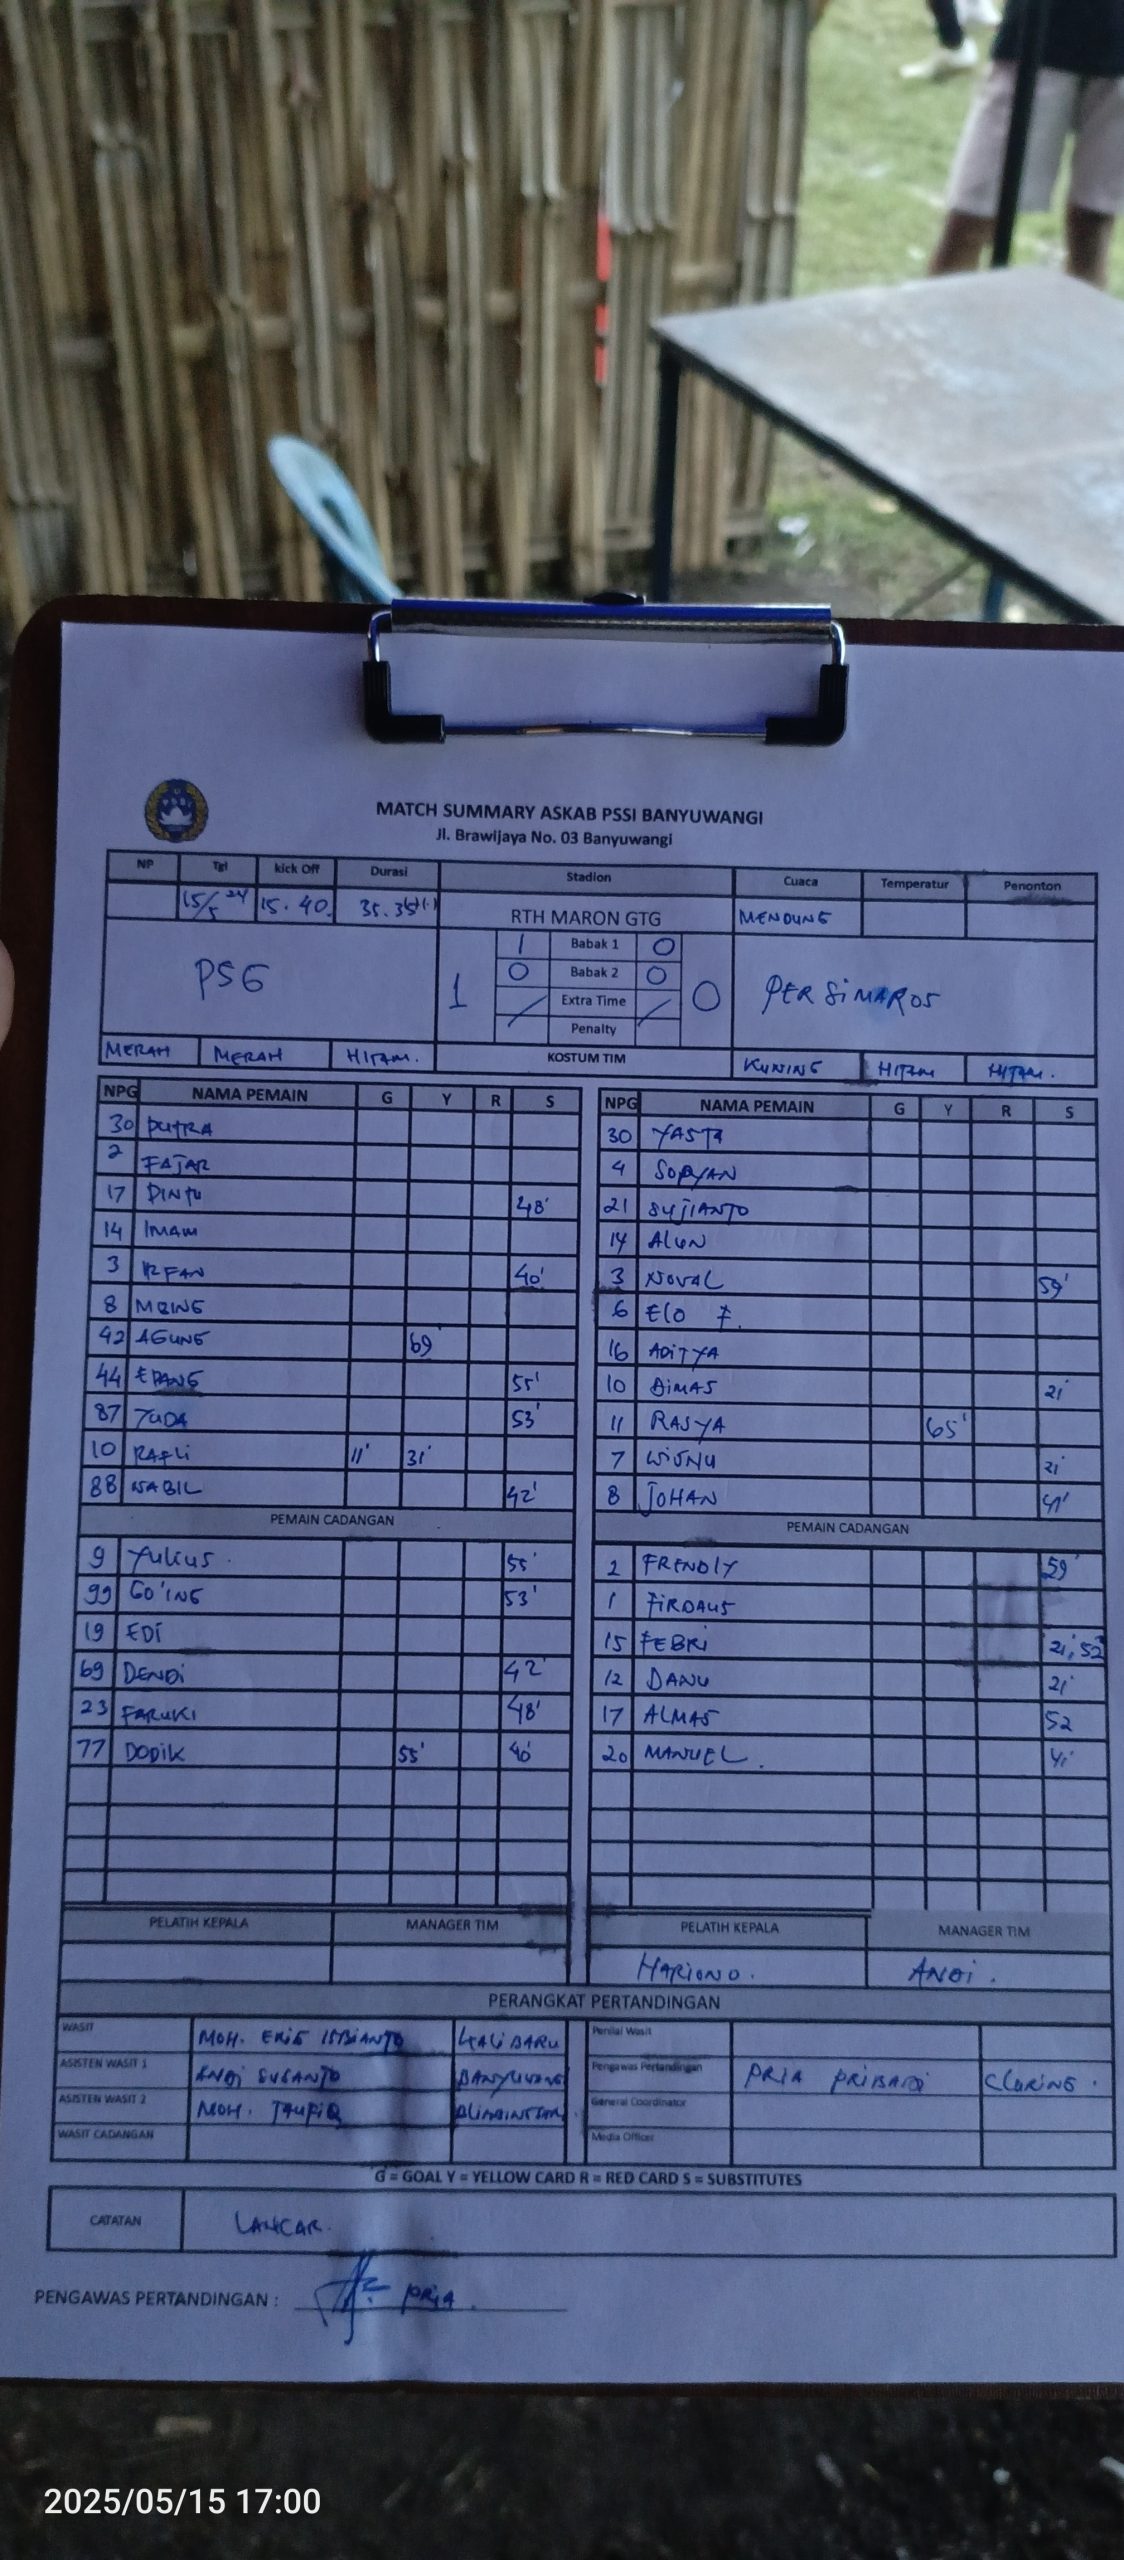 MATCH SUMMARY ASKAB PSSI BANYUWANGI
Jl. Brawijaya No. 03 Banyuwangi
NP Tgl kick Off Durasi Stadion Cuaca Temperatur Penonton
15/5 24 15.40 35.35 RTH MARON GTG MENDUNG
PSG 1 PERSIMAROS 0
1 Babak 1 0
0 Babak 2 0
Extra Time
Penalty
MERAH MERAH HITAM. KOSTUM TIM KUNING HITAM HITAM.
NPG NAMA PEMAIN G Y R S
30 PUTRA
2 FAJAR
17 PINTU 48'
14 IMAM
3 IRFAN 40'
8 MOING
42 AGUNG 69'
44 EPANG 55'
87 YUDA 53'
10 RAFLI 11' 31'
88 NABIL 42'
PEMAIN CADANGAN
9 YULIUS. 55'
99 GO'ING 53'
19 EDI
69 DENDI 42'
23 FARUKI 48'
77 DODIK 55' 40'
PELATIH KEPALA MANAGER TIM
NPG NAMA PEMAIN G Y R S
30 YASTA
4 SOPYAN
21 SUJIANTO
14 ALUN
3 NOVAL 59'
6 ELO F.
16 ADITYA
10 DIMAS 21'
11 RASYA 65'
7 WISNU 21'
8 JOHAN 41'
PEMAIN CADANGAN
2 FRENDLY 59'
1 FIRDAUS
15 FEBRI 21', 52'
12 DANU 21'
17 ALMAS 52
20 MANUEL. 41'
PELATIH KEPALA MANAGER TIM
HARIONO. ANDI.
PERANGKAT PERTANDINGAN
WASIT MOH. ERIE ISBIANTO KALIBARU
ASISTEN WASIT 1 ANDI SUSANTO BANYUWANGI
ASISTEN WASIT 2 MOH. TAUFIQ BLIMBINGSARI
WASIT CADANGAN
Penilai Wasit
Pengawas Pertandingan PRIA PRIBADI CLURING.
General Coordinator
Media Officer
G = GOAL Y = YELLOW CARD R = RED CARD S = SUBSTITUTES
CATATAN LANCAR.
PENGAWAS PERTANDINGAN : PRIA.
2025/05/15 17:00